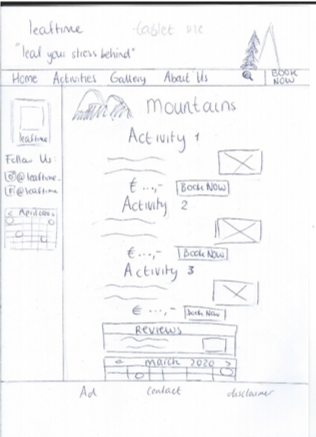 leaftime
"leaf your stress behind"
Home Activities Gallery About Us
BOOK NOW
leaftime
Follow Us
@leaftime
@leaftime
Mountains
Activity 1
€ ...,- Book Now
Activity 2
€ ...,- Book Now
Activity 3
€ ...,- Book Now
REVIEWS
< march 2020 >
Ad contact disclaimer